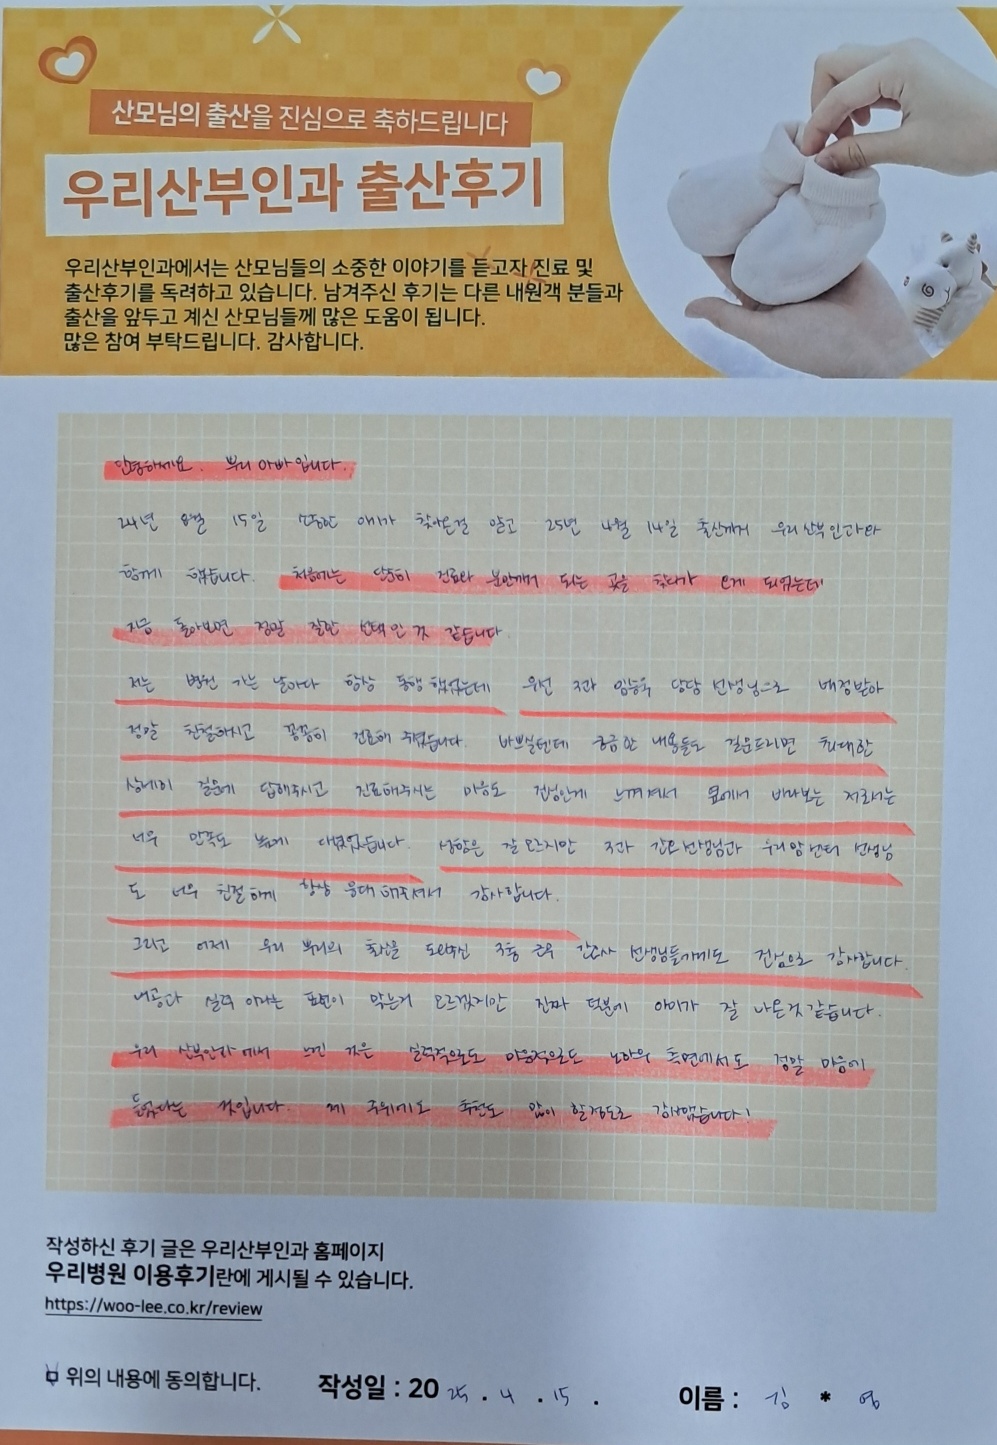 산모님의 출산을 진심으로 축하드립니다
우리산부인과 출산후기
우리산부인과에서는 산모님들의 소중한 이야기를 듣고자 진료 및
출산후기를 독려하고 있습니다. 남겨주신 후기는 다른 내원객 분들과
출산을 앞두고 계신 산모님들께 많은 도움이 됩니다.
많은 참여 부탁드립니다. 감사합니다.
안녕하세요. 뿌리 아빠입니다.
24년 8월 15일 소중한 아이가 찾아온걸 알고 25년 4월 14일 출산까지 우리산부인과와
함께 했습니다. 처음에는 단순히 진료와 분만까지 되는 곳을 찾다가 오게 되었는데
지금 돌아보면 정말 잘한 선택인 것 같습니다.
저는 병원 가는 날마다 항상 동행했었는데 우선 3과 담당 선생님으로 배정받아
정말 친절하시고 꼼꼼히 진료해 주셨습니다. 바쁘실텐데 궁금한 내용들도 질문드리면 최대한
상세히 질문에 답해주시고 진료해주시는 마음도 진심인게 느껴져서 옆에서 바라보는 저로서는
너무 만족도 높게 다녔었습니다. 성함은 잘 모르지만 3과 간호선생님과 우리맘센터 선생님
도 너무 친절하게 항상 응대해주셔서 감사합니다.
그리고 어제 우리 뿌리의 출산을 도와주신 3층 근무 간호사 선생님들에게도 진심으로 감사합니다.
내공과 실력 이라는 표현이 맞는지 모르겠지만 진짜 덕분에 아이가 잘 나온것 같습니다.
우리 산부인과에서 느낀 것은 실력적으로도 마음적으로도 노하우 측면에서도 정말 마음에
들었다는 것입니다. 제 주위에도 추천도 많이 할정도로 감사했습니다!
작성하신 후기 글은 우리산부인과 홈페이지
우리병원 이용후기란에 게시될 수 있습니다.
https://woo-lee.co.kr/review
위의 내용에 동의합니다. 작성일 : 2025. 4. 15. 이름 : 김 * 영